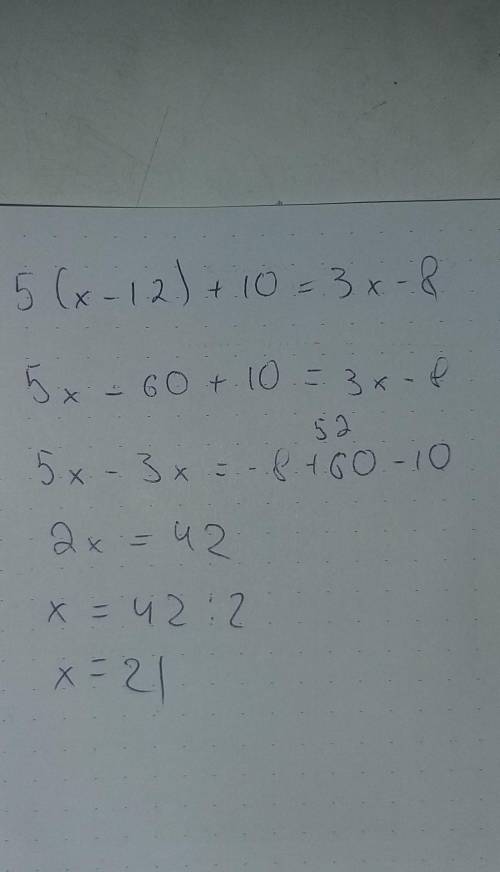 5(x-12)+10=3x-8
5x-60+10=3x-8
52
5x-3x=-8+60-10
2x=42
x=42:2
x=21